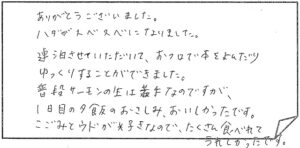 ありがとうございました。
ハダがスベスベになりました。
連泊させていただいて、おフロで本をよんだり
ゆっくりすることができました。
普段サーモンの生は苦手なのですが、
1日目の夕飯のおさしみ、おいしかったです。
こごみとウドが大好きなので、たくさん食べれて
うれしかったです。